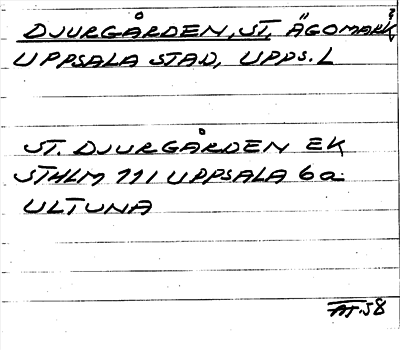 DJURGÅRDEN, ST, ÄGOMARK
UPPSALA STAD, UPPS. L
ST. DJURGÅRDEN EK
STHLM 111 UPPSALA 6a
ULTUNA
AT.58